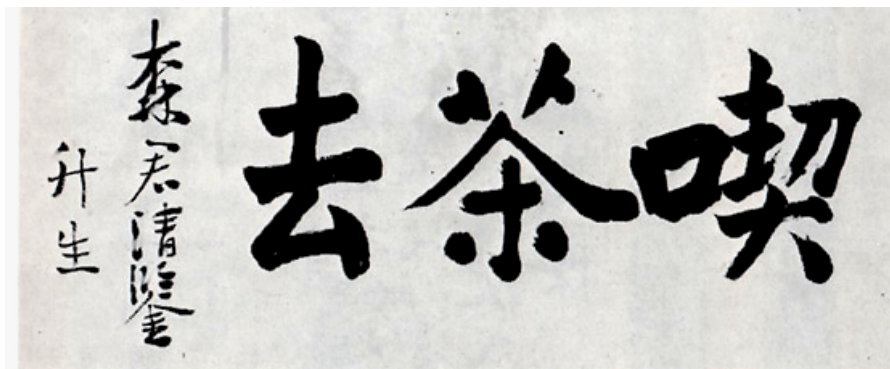 喫茶去
森君清鑒
升生